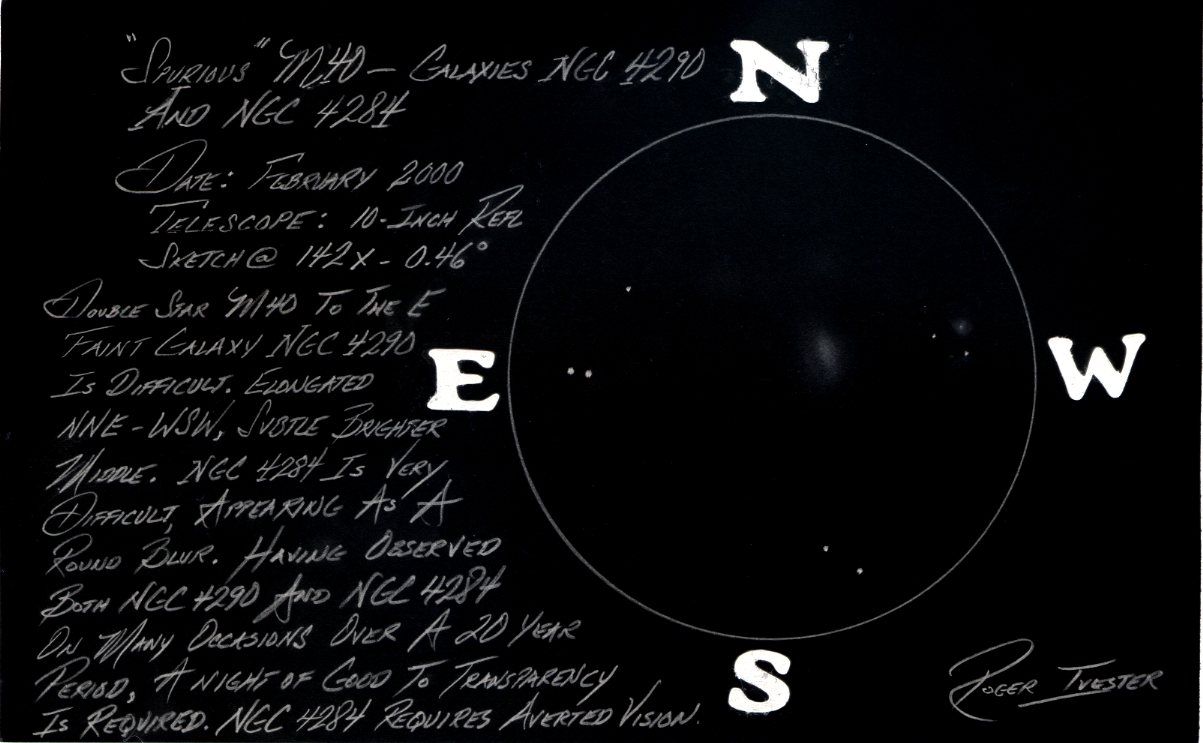 "Spurious" M40 – Galaxies NGC 4290
And NGC 4284
Date: February 2000
Telescope: 10-Inch Refl
Sketch @ 142x - 0.46°
Double Star M40 To The E
Faint Galaxy NGC 4290
Is Difficult. Elongated
NNE-WSW, Subtle Brighter
Middle. NGC 4284 Is Very
Difficult, Appearing As A
Round Blur. Having Observed
Both NGC 4290 And NGC 4284
On Many Occasions Over A 20 Year
Period, A Night of Good To Transparency
Is Required. NGC 4284 Requires Averted Vision.
N
E
W
S
Roger Ivester